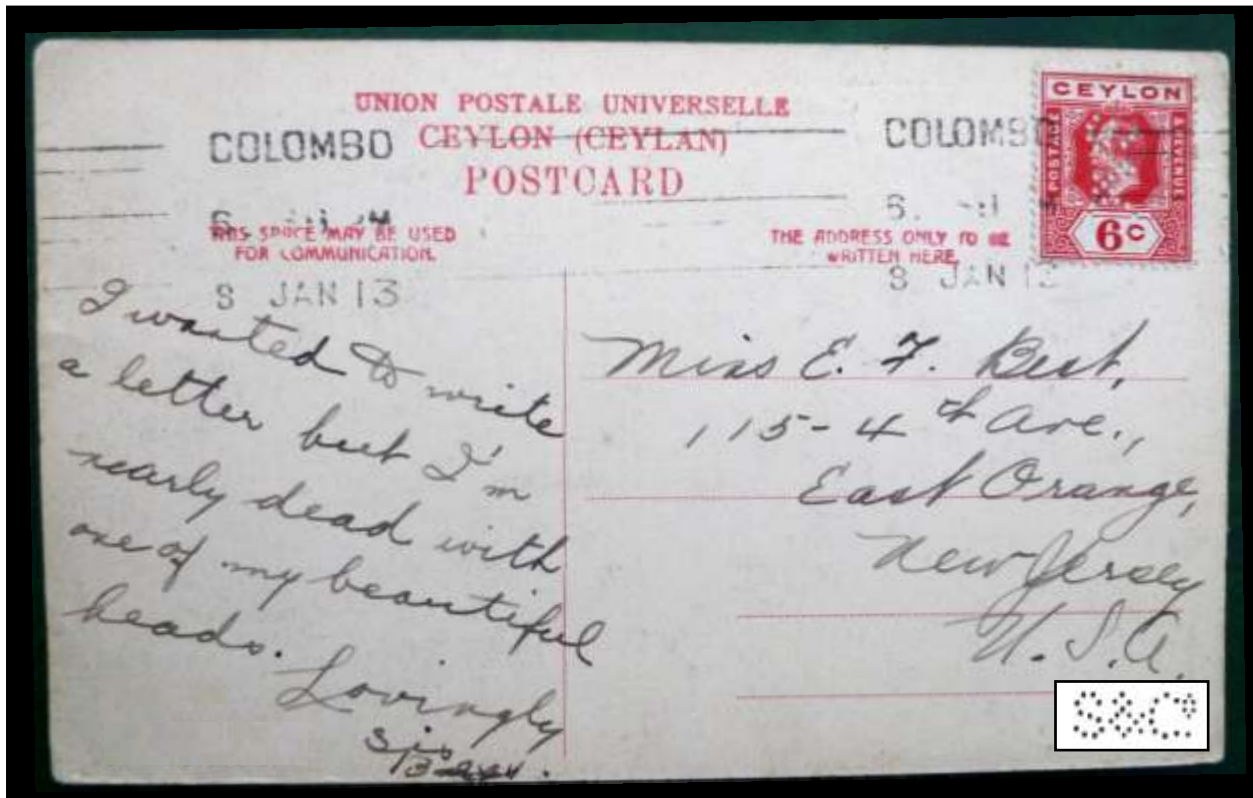 UNION POSTALE UNIVERSELLE
CEYLON (CEYLAN)
POSTCARD
COLOMBO
8 JAN 13
COLOMBO
8 JAN 13
CEYLON
POSTAGE
& REVENUE
6c
THIS SPACE MAY BE USED
FOR COMMUNICATION.
THE ADDRESS ONLY TO BE
WRITTEN HERE.
I wanted to write
a letter but I'm
nearly dead with
one of my beautiful
heads.
Lovingly
Sis
Miss E. F. Best,
115-4th Ave.,
East Orange,
New Jersey
U.S.A.
S&Co